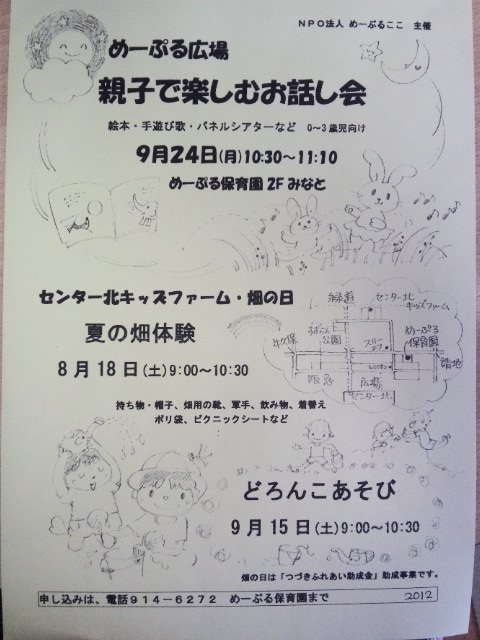 NPO法人 めーぷるここ 主催
めーぷる広場
親子で楽しむお話し会
絵本・手遊び歌・パネルシアターなど 0～3歳児向け
9月24日(月)10:30～11:10
めーぷる保育園2Fみなと
センター北キッズファーム・畑の日
夏の畑体験
8月18日(土)9:00～10:30
持ち物・帽子、畑用の靴、軍手、飲み物、着替え
ポリ袋、ピクニックシートなど
緑道
センター北
キッズファーム
公園
めーぷる
保育園
阪急
広場
センター北
どろんこあそび
9月15日(土)9:00～10:30
畑の日は「つづきふれあい助成金」助成事業です。
申し込みは、電話914－6272 めーぷる保育園まで
2012